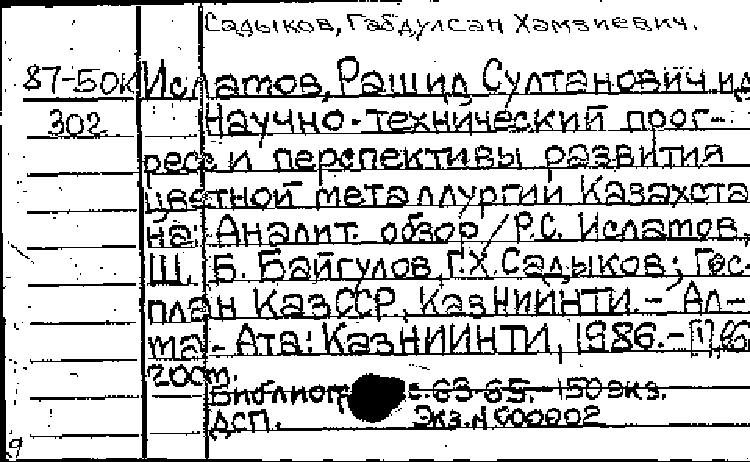 Садыков, Габдулсан Хамзиевич.
87-50к Ислатов, Рашид Султанович и д
302 Научно-технический прог-
ресс и перспективы развития
цветной металлургии Казахста
на: Аналит. обзор / Р.С. Ислатов,
Ш. Б. Байгулов, Г.Х. Садыков; Гос-
план КазССР, КазНИИНТИ. - Ал-
ма-Ата: КазНИИНТИ, 1986. - [1], 65
20 см.
Библиогр с. 63-65. 150 экз.
ДСП. Экз. № 000002
9